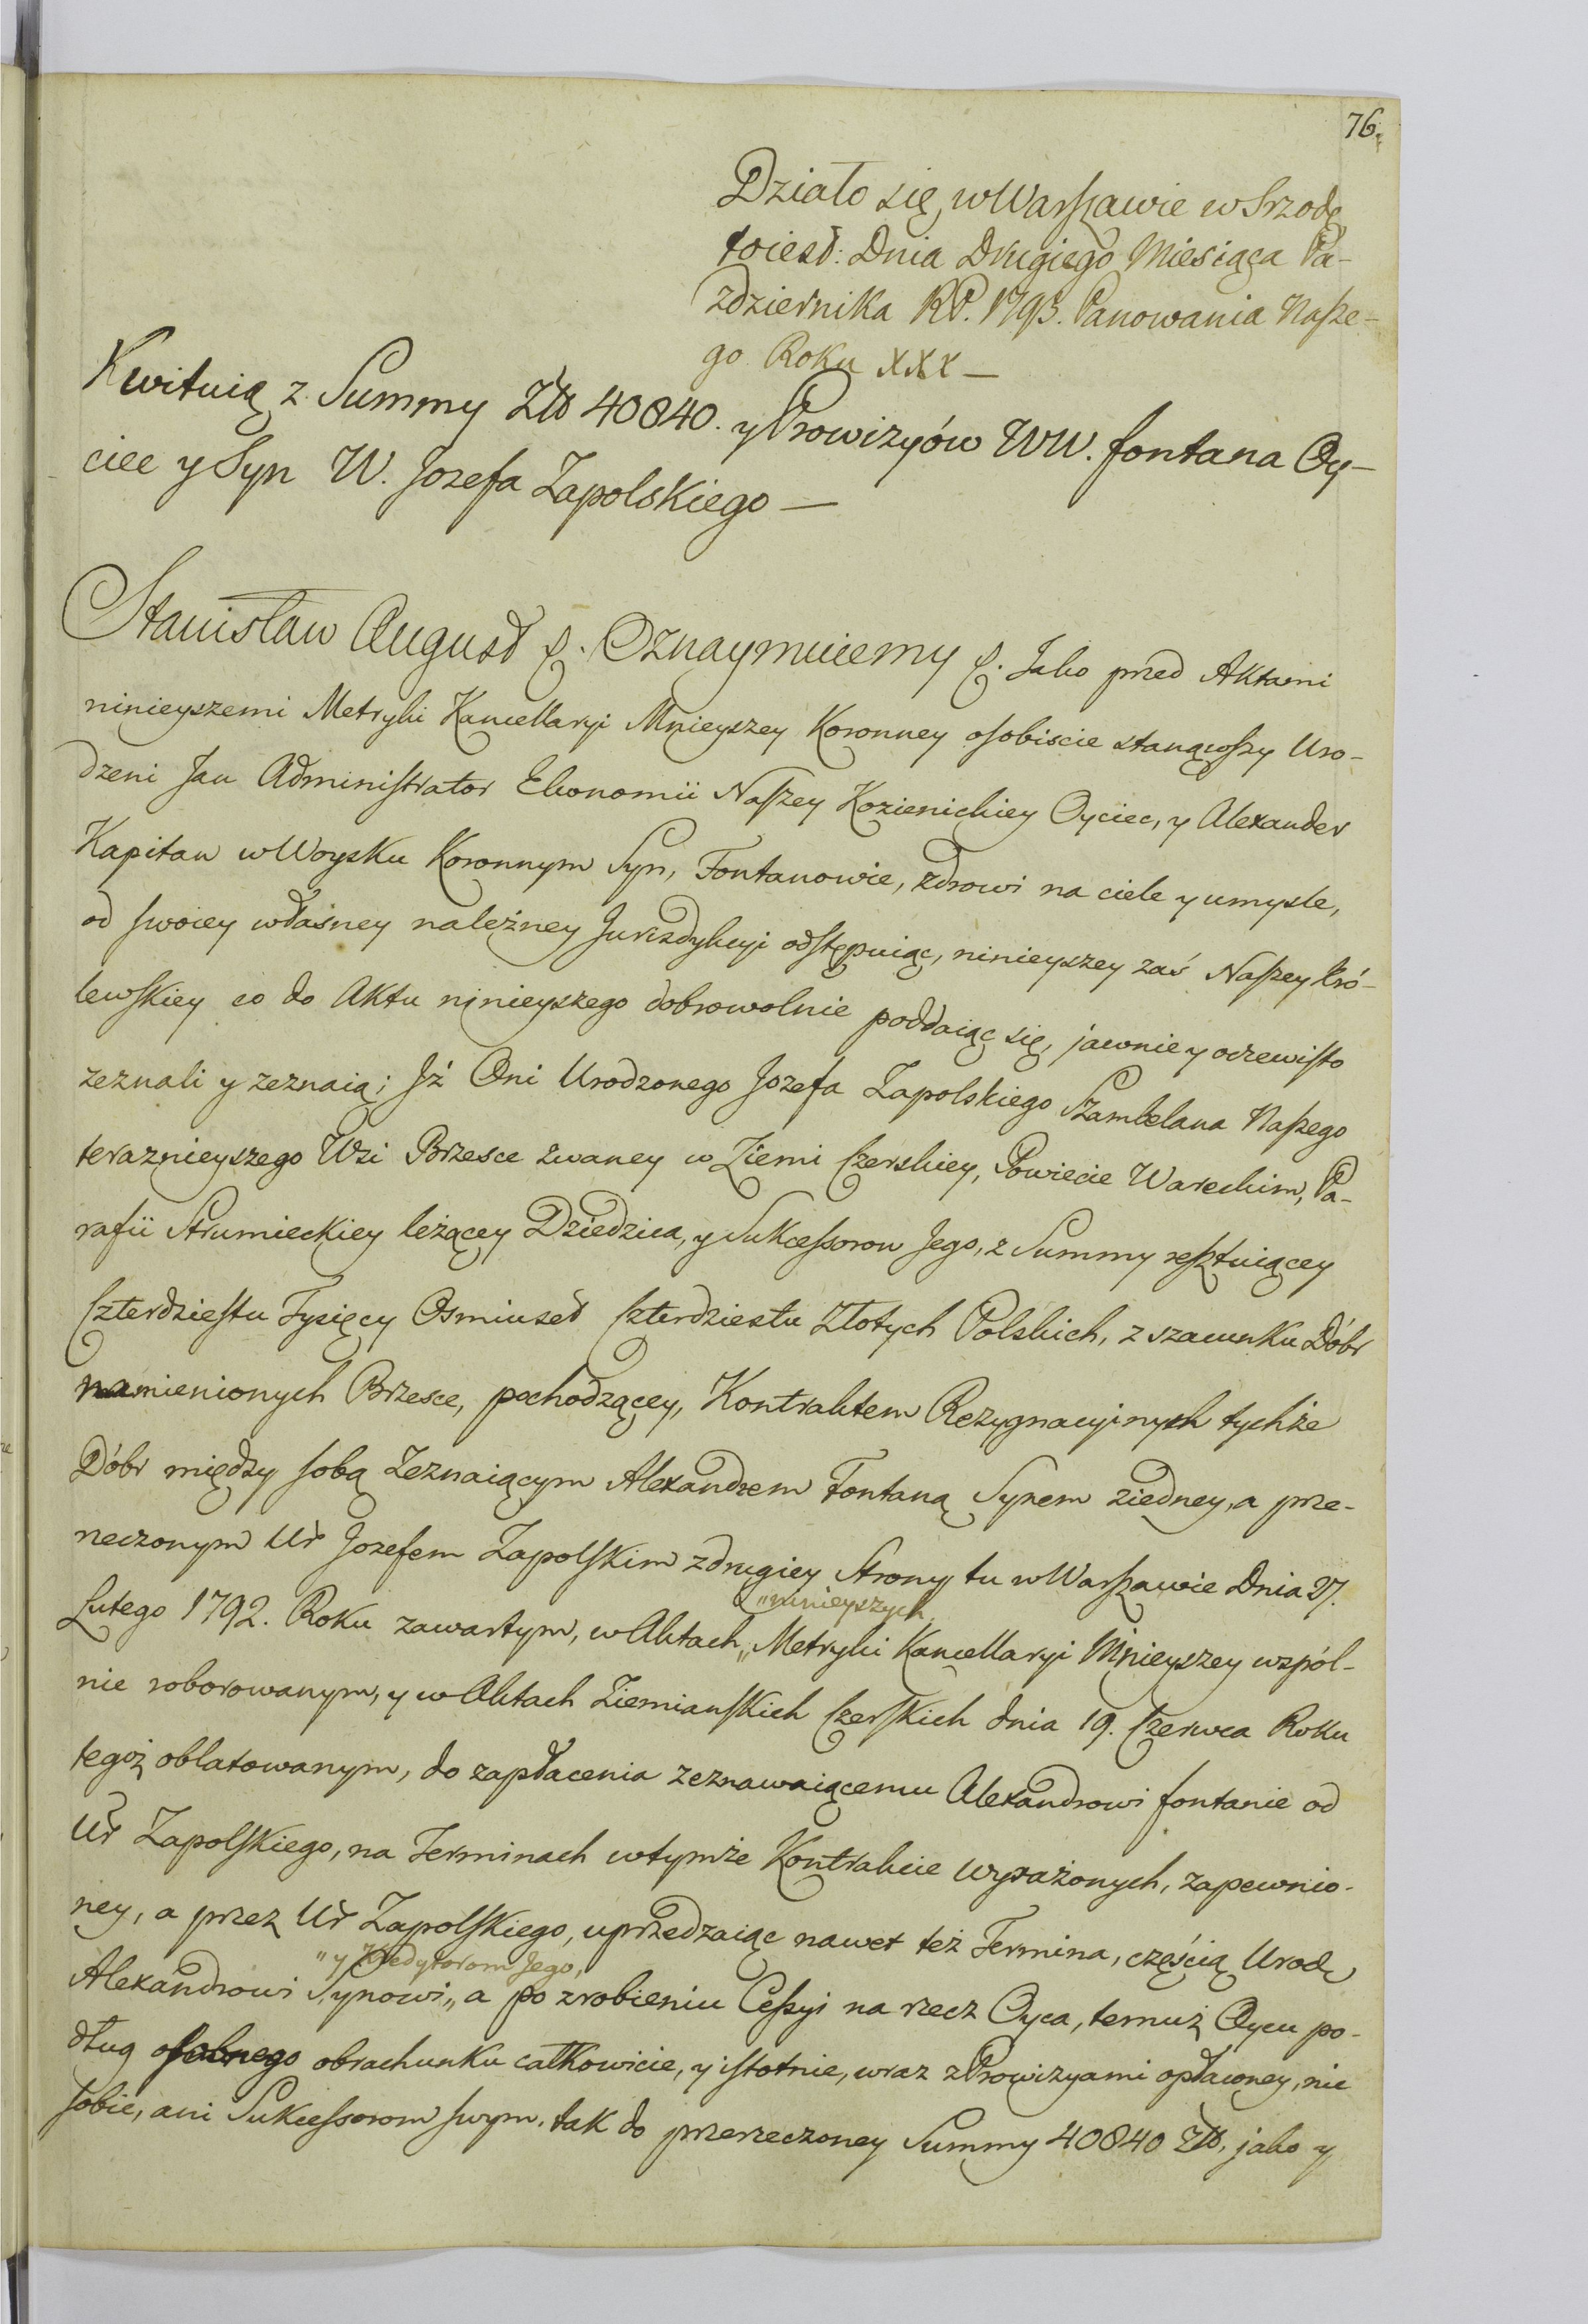 76.
Działo się w Warszawie w Srzodę
toiest: Dnia Drugiego Miesiąca Pa-
zdziernika RP. 1793. Panowania Nasze-
go Roku XXX —
Kwituią z Summy Złł 40840. y Prowizyów WW. fontana Oy-
ciec y Syn W. Jozefa Zapolskiego —
Stanisław August &. Oznaymuiemy &. Jako przed Aktami
ninieyszemi Metryki Kancellaryi Mnieyszey Koronney osobiscie stanąwszy Uro-
dzeni Jan Administrator Ekonomii Naszey Kozienickiey Oyciec, y Alexander
Kapitan w Woysku Koronnym Syn, Fontanowie, zdrowi na ciele y umysle,
od swoiey właśney należney Jurizdykcyi odstępuiąc, ninieyszey zaś Naszey Kró-
lewskiey co do Aktu ninieyszego dobrowolnie poddaiąc się, jawnie y oczewisto
zeznali y zeznaią; Jż Oni Urodzonego Jozefa Zapolskiego Szambelana Naszego
teraznieyszego Wsi Brzesce zwaney w Ziemi Czerskiey, Powiecie Wareckim, Pa-
rafii Strumieckiey leżącey Dziedzica, y Sukcessorow Jego, z Summy resztuiącey
Czterdziestu Tysięcy Osmiuset Czterdziestu Złotych Polskich, z szacunku Dóbr
namienionych Brzesce, pochodzącey, Kontraktem Rezygnacyinych tychże
Dóbr między sobą Zeznaiącym Alexandrem Fontaną Synem ziedney, a prze-
neczonym Ur Jozefem Zapolskim z drugiey Strony tu w Warszawie Dnia 27.
„ninieyszych
Lutego 1792. Roku zawartym, w Aktach „ Metryki Kancellaryi Mnieyszey wspól-
nie roborowanym, y w Aktach Ziemianskich Czerskich dnia 19. Czerwca Roku
tegoż oblatowanym, do zapłacenia zeznawaiącemu Alexandrowi fontanie od
Ur Zapolskiego, na Terminach w tymże Kontrakcie wyrażonych, zapewnio-
ney, a przez Ur Zapolskiego, uprzedzaiąc nawet też Termina, częścią Urodz
„y Kredytorom Jego,
Alexandrowi Synowi „ a po zrobieniu Cessyi na rzecz Oyca, temuż Oycu po-
dług osobnego obrachunku całkowicie, y istotnie, wraz z Prowizyami opłaconey, nic
sobie, ani Sukcessorom swym, tak do przerzeczoney Summy 40840 Złł, jako y